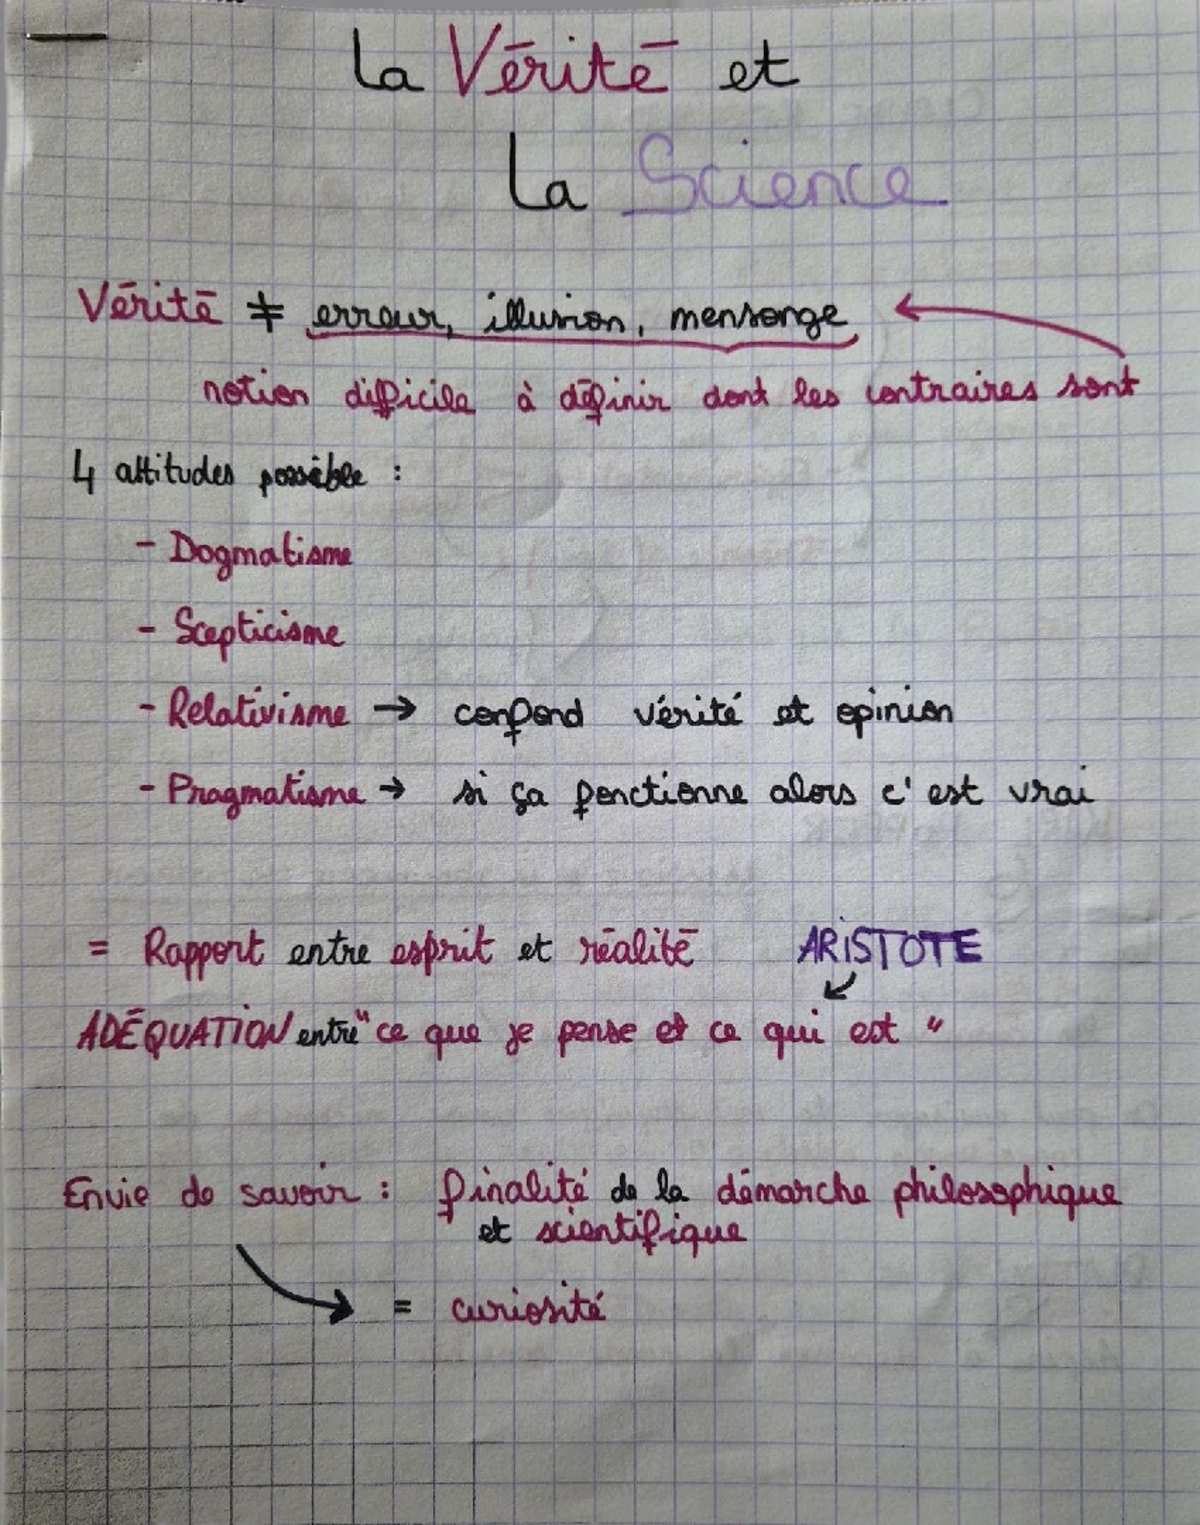 La Vérité et
la Science
Vérité ≠ erreur, illusion, mensonge
notion difficile à définir dont les contraires sont
4 attitudes possible :
- Dogmatisme
- Scepticisme
- Relativisme → confond vérité et opinion
- Pragmatisme → si ça fonctionne alors c'est vrai
= Rapport entre esprit et réalité ARISTOTE
ADÉQUATION entre "ce que je pense et ce qui est"
Envie de savoir : finalité de la démarche philosophique
et scientifique
= curiosité